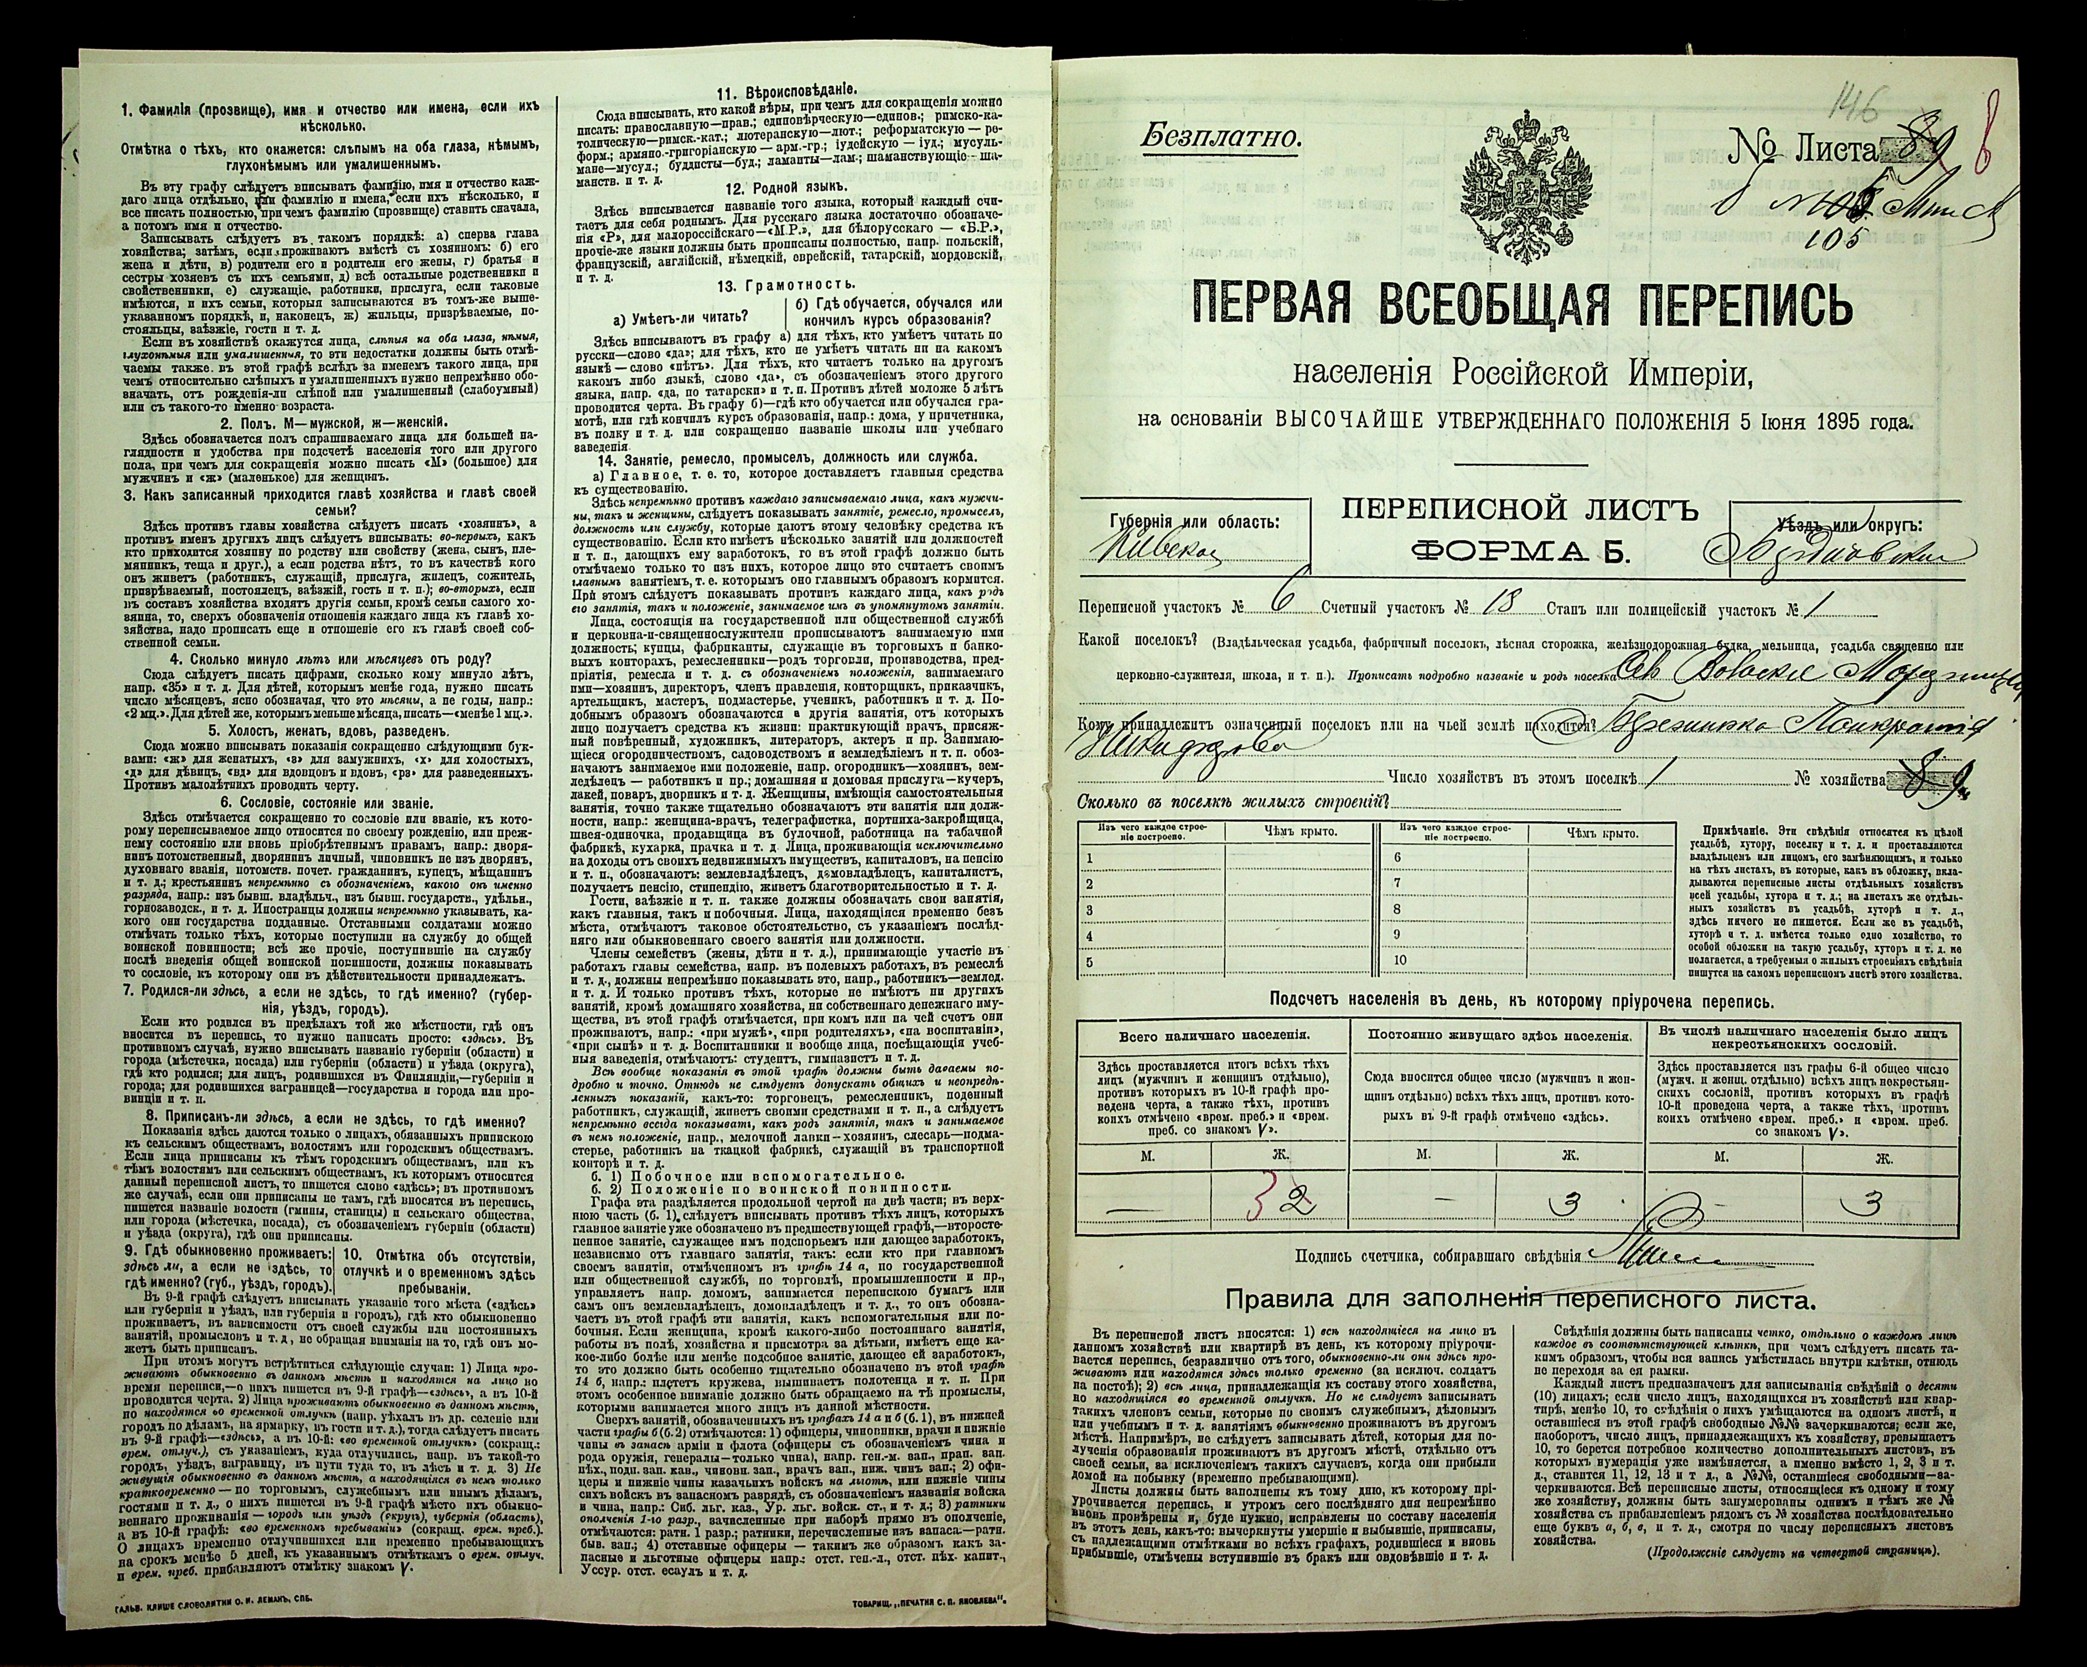 1. Фамилія (прозвище), имя и отчество или имена, если ихъ
нѣсколько.
Отмѣтка о тѣхъ, кто окажется: слѣпымъ на оба глаза, нѣмымъ,
глухонѣмымъ или умалишеннымъ.
Въ эту графу слѣдуетъ вписывать фамилію, имя и отчество каж-
даго лица отдѣльно, или фамилію и имена, если ихъ нѣсколько, и
все писать полностью, при чемъ фамилію (прозвище) ставить сначала,
а потомъ имя и отчество.
Записывать слѣдуетъ въ такомъ порядкѣ: а) сперва глава
хозяйства; затѣмъ, если проживаютъ вмѣстѣ съ хозяиномъ: б) его
жена и дѣти, в) родители его и родители его жены, г) братья и
сестры хозяевъ съ ихъ семьями, д) всѣ остальные родственники и
свойственники, е) служащіе, работники, прислуга, если таковые
имѣются, и ихъ семьи, которыя записываются въ томъ-же выше-
указанномъ порядкѣ, и, наконецъ, ж) жильцы, призрѣваемые, по-
стояльцы, заѣзжіе, гости и т. д.
Если въ хозяйствѣ окажутся лица, слѣпыя на оба глаза, нѣмыя,
глухонѣмыя или умалишенныя, то эти недостатки должны быть отмѣ-
чаемы также въ этой графѣ вслѣдъ за именемъ такого лица, при
чемъ относительно слѣпыхъ и умалишенныхъ нужно непремѣнно обо-
значать, отъ рожденія-ли слѣпой или умалишенный (слабоумный)
или съ такого-то именно возраста.
2. Полъ. М—мужской, ж—женскій.
Здѣсь обозначается полъ спрашиваемаго лица для большей на-
глядности и удобства при подсчетѣ населенія того или другого
пола, при чемъ для сокращенія можно писать «М» (большое) для
мужчинъ и «ж» (маленькое) для женщинъ.
3. Какъ записанный приходится главѣ хозяйства и главѣ своей
семьи?
Здѣсь противъ главы хозяйства слѣдуетъ писать «хозяинъ», а
противъ именъ другихъ лицъ слѣдуетъ вписывать: во-первыхъ, какъ
кто приходится хозяину по родству или свойству (жена, сынъ, пле-
мянникъ, теща и друг.), а если родства нѣтъ, то въ качествѣ кого
онъ живетъ (работникъ, служащій, прислуга, жилецъ, сожитель,
призрѣваемый, постоялецъ, заѣзжій, гость и т. п.); во-вторыхъ, если
въ составъ хозяйства входятъ другія семьи, кромѣ семьи самого хо-
зяина, то, сверхъ обозначенія отношенія каждаго лица къ главѣ хо-
зяйства, надо прописать еще и отношеніе его къ главѣ своей соб-
ственной семьи.
4. Сколько минуло лѣтъ или мѣсяцевъ отъ роду?
Сюда слѣдуетъ писать цифрами, сколько кому минуло лѣтъ,
напр. «35» и т. д. Для дѣтей, которымъ менѣе года, нужно писать
число мѣсяцевъ, ясно обозначая, что это мѣсяцы, а не годы, напр.:
«2 мц.». Для дѣтей же, которымъ меньше мѣсяца, писать—«менѣе 1 мц.».
5. Холостъ, женатъ, вдовъ, разведенъ.
Сюда можно вписывать показанія сокращенно слѣдующими бук-
вами: «ж» для женатыхъ, «з» для замужнихъ, «х» для холостыхъ,
«д» для дѣвицъ, «вд» для вдовцовъ и вдовъ, «рз» для разведенныхъ.
Противъ малолѣтнихъ проводить черту.
6. Сословіе, состояніе или званіе.
Здѣсь отмѣчается сокращенно то сословіе или званіе, къ кото-
рому переписываемое лицо относится по своему рожденію, или преж-
нему состоянію или вновь пріобрѣтеннымъ правамъ, напр.: дворя-
нинъ потомственный, дворянинъ личный, чиновникъ не изъ дворянъ,
духовнаго званія, потомств. почет. гражданинъ, купецъ, мѣщанинъ
и т. д.; крестьянинъ непремѣнно съ обозначеніемъ, какого онъ именно
разряда, напр.: изъ бывш. владѣльч., изъ бывш. государств., удѣльн.,
горнозаводск., и т. д. Иностранцы должны непремѣнно указывать, ка-
кого они государства подданные. Отставными солдатами можно
отмѣчать только тѣхъ, которые поступили на службу до общей
воинской повинности; всѣ же прочіе, поступившіе на службу
послѣ введенія общей воинской повинности, должны показывать
то сословіе, къ которому они въ дѣйствительности принадлежатъ.
7. Родился-ли здѣсь, а если не здѣсь, то гдѣ именно? (губер-
нія, уѣздъ, городъ).
Если кто родился въ предѣлахъ той же мѣстности, гдѣ онъ
вносится въ перепись, то нужно написать просто: «здѣсь». Въ
противномъ случаѣ, нужно вписывать названіе губерніи (области) и
города (мѣстечка, посада) или губерніи (области) и уѣзда (округа),
гдѣ кто родился; для лицъ, родившихся въ Финляндіи,—губерніи и
города; для родившихся заграницей—государства и города или про-
винціи и т. п.
8. Приписанъ-ли здѣсь, а если не здѣсь, то гдѣ именно?
Показанія здѣсь даются только о лицахъ, обязанныхъ припискою
къ сельскимъ обществамъ, волостямъ или городскимъ обществамъ.
Если лица приписаны къ тѣмъ городскимъ обществамъ, или къ
тѣмъ волостямъ или сельскимъ обществамъ, къ которымъ относится
данный переписной листъ, то пишется слово «здѣсь»; въ противномъ
же случаѣ, если они приписаны не тамъ, гдѣ вносятся въ перепись,
пишется названіе волости (гмины, станицы) и сельскаго общества,
или города (мѣстечка, посада), съ обозначеніемъ губерніи (области)
и уѣзда (округа), гдѣ они приписаны.
9. Гдѣ обыкновенно проживаетъ:
здѣсь ли, а если не здѣсь, то
гдѣ именно? (губ., уѣздъ, городъ).
10. Отмѣтка объ отсутствіи,
отлучкѣ и о временномъ здѣсь
пребываніи.
Въ 9-й графѣ слѣдуетъ вписывать указаніе того мѣста («здѣсь»
или губернія и уѣздъ, или губернія и городъ), гдѣ кто обыкновенно
проживаетъ, въ зависимости отъ своей службы или постоянныхъ
занятій, промысловъ и т. д., не обращая вниманія на то, гдѣ онъ мо-
жетъ быть приписанъ.
При этомъ могутъ встрѣтиться слѣдующіе случаи: 1) Лица про-
живаютъ обыкновенно въ данномъ мѣстѣ и находятся на лицо во
время переписи,—о нихъ пишется въ 9-й графѣ—«здѣсь», а въ 10-й
проводится черта. 2) Лица проживаютъ обыкновенно въ данномъ мѣстѣ,
но находятся во временной отлучкѣ (напр. уѣхалъ въ др. селеніе или
городъ по дѣламъ, на ярмарку, въ гости и т. д.), тогда слѣдуетъ писать
въ 9-й графѣ—«здѣсь», а въ 10-й: «во временной отлучкѣ» (сокращ.:
врем. отлуч.), съ указаніемъ, куда отлучились, напр. въ такой-то
городъ, уѣздъ, заграницу, въ пути туда то, въ лѣсъ и т. д. 3) Не
живущія обыкновенно въ данномъ мѣстѣ, а находящіяся въ немъ только
кратковременно — по торговымъ, служебнымъ или инымъ дѣламъ,
гостями и т. д., о нихъ пишется въ 9-й графѣ мѣсто ихъ обыкно-
веннаго проживанія — городъ или уѣздъ (округъ), губернія (область),
а въ 10-й графѣ: «во временномъ пребываніи» (сокращ. врем. преб.).
О лицахъ временно отлучившихся или временно пребывающихъ
на срокъ менѣе 5 дней, къ указаннымъ отмѣткамъ о врем. отлуч.
и врем. преб. прибавляютъ отмѣтку знакомъ V.
ГАЛЬВ. КЛИШЕ СЛОВОЛИТНИ О. И. ЛЕМАНЪ, СПБ.
11. Вѣроисповѣданіе.
Сюда вписывать, кто какой вѣры, при чемъ для сокращенія можно
писать: православную—прав.; единовѣрческую—единов.; римско-ка-
толическую—римск.-кат.; лютеранскую—лют.; реформатскую — ре-
форм.; армяно-григоріанскую — арм.-гр.; іудейскую — іуд.; мусуль-
мане—мусул.; буддисты—буд.; ламаиты—лам.; шаманствующіе—ша-
манств. и т. д.
12. Родной языкъ.
Здѣсь вписывается названіе того языка, который каждый счи-
таетъ для себя роднымъ. Для русскаго языка достаточно обозначе-
нія «Р», для малороссійскаго—«М.Р.», для бѣлорусскаго — «Б.Р.»,
прочіе-же языки должны быть прописаны полностью, напр. польскій,
французскій, англійскій, нѣмецкій, еврейскій, татарскій, мордовскій,
и т. д.
13. Грамотность.
а) Умѣетъ-ли читать?
б) Гдѣ обучается, обучался или
кончилъ курсъ образованія?
Здѣсь вписываютъ въ графу а) для тѣхъ, кто умѣетъ читать по
русски—слово «да»; для тѣхъ, кто не умѣетъ читать ни на какомъ
языкѣ — слово «нѣтъ». Для тѣхъ, кто читаетъ только на другомъ
какомъ либо языкѣ, слово «да», съ обозначеніемъ этого другого
языка, напр. «да, по татарски» и т. п. Противъ дѣтей моложе 5 лѣтъ
проводится черта. Въ графу б)—гдѣ кто обучается или обучался гра-
мотѣ, или гдѣ кончилъ курсъ образованія, напр.: дома, у причетника,
въ полку и т. д. или сокращенно названіе школы или учебнаго
заведенія.
14. Занятіе, ремесло, промыселъ, должность или служба.
а) Главное, т. е. то, которое доставляетъ главныя средства
къ существованію.
Здѣсь непремѣнно противъ каждаго записываемаго лица, какъ мужчи-
ны, такъ и женщины, слѣдуетъ показывать занятіе, ремесло, промыселъ,
должность или службу, которые даютъ этому человѣку средства къ
существованію. Если кто имѣетъ нѣсколько занятій или должностей
и т. п., дающихъ ему заработокъ, то въ этой графѣ должно быть
отмѣчаемо только то изъ нихъ, которое лицо это считаетъ своимъ
главнымъ занятіемъ, т. е. которымъ оно главнымъ образомъ кормится.
При этомъ слѣдуетъ показывать противъ каждаго лица, какъ родъ
его занятія, такъ и положеніе, занимаемое имъ въ упомянутомъ занятіи.
Лица, состоящія на государственной или общественной службѣ
и церковно-и-священнослужители прописываютъ занимаемую ими
должность; купцы, фабриканты, служащіе въ торговыхъ и банко-
выхъ конторахъ, ремесленники—родъ торговли, производства, пред-
пріятія, ремесла и т. д. съ обозначеніемъ положенія, занимаемаго
ими—хозяинъ, директоръ, членъ правленія, конторщикъ, приказчикъ,
артельщикъ, мастеръ, подмастерье, ученикъ, работникъ и т. д. По-
добнымъ образомъ обозначаются и другія занятія, отъ которыхъ
лицо получаетъ средства къ жизни: практикующій врачъ, присяж-
ный повѣренный, художникъ, литераторъ, актеръ и пр. Занимаю-
щіеся огородничествомъ, садоводствомъ и земледѣліемъ и т. п. обоз-
начаютъ занимаемое ими положеніе, напр. огородникъ—хозяинъ, зем-
ледѣлецъ — работникъ и пр.; домашняя и домовая прислуга—кучеръ,
лакей, поваръ, дворникъ и т. д. Женщины, имѣющія самостоятельныя
занятія, точно также тщательно обозначаютъ эти занятія или долж-
ности, напр.: женщина-врачъ, телеграфистка, портниха-закройщица,
швея-одиночка, продавщица въ булочной, работница на табачной
фабрикѣ, кухарка, прачка и т. д. Лица, проживающія исключительно
на доходы отъ своихъ недвижимыхъ имуществъ, капиталовъ, на пенсію
и т. п., обозначаютъ: землевладѣлецъ, домовладѣлецъ, капиталистъ,
получаетъ пенсію, стипендію, живетъ благотворительностью и т. д.
Гости, заѣзжіе и т. п. также должны обозначать свои занятія,
какъ главныя, такъ и побочныя. Лица, находящіяся временно безъ
мѣста, отмѣчаютъ таковое обстоятельство, съ указаніемъ послѣд-
няго или обыкновеннаго своего занятія или должности.
Члены семействъ (жены, дѣти и т. д.), принимающіе участіе въ
работахъ главы семейства, напр. въ полевыхъ работахъ, въ ремеслѣ
и т. д., должны непремѣнно показывать это, напр., работникъ—землед.
и т. д. И только противъ тѣхъ, которые не имѣютъ ни другихъ
занятій, кромѣ домашняго хозяйства, ни собственнаго денежнаго иму-
щества, въ этой графѣ отмѣчается, при комъ или на чей счетъ они
проживаютъ, напр.: «при мужѣ», «при родителяхъ», «на воспитаніи»,
«при сынѣ» и т. д. Воспитанники и вообще лица, посѣщающія учеб-
ныя заведенія, отмѣчаютъ: студентъ, гимназистъ и т. д.
Всѣ вообще показанія въ этой графѣ должны быть даваемы по-
дробно и точно. Отнюдь не слѣдуетъ допускать общихъ и неопредѣ-
ленныхъ показаній, какъ-то: торговецъ, ремесленникъ, поденный
работникъ, служащій, живетъ своими средствами и т. п., а слѣдуетъ
непремѣнно всегда показывать, какъ родъ занятія, такъ и занимаемое
въ немъ положеніе, напр., мелочной лавки—хозяинъ, слесарь—подма-
стерье, работникъ на ткацкой фабрикѣ, служащій въ транспортной
конторѣ и т. д.
б. 1) Побочное или вспомогательное.
б. 2) Положеніе по воинской повинности.
Графа эта раздѣляется продольной чертой на двѣ части; въ верх-
нюю часть (б. 1) слѣдуетъ вписывать противъ тѣхъ лицъ, которыхъ
главное занятіе уже обозначено въ предшествующей графѣ,—второсте-
пенное занятіе, служащее имъ подспорьемъ или дающее заработокъ,
независимо отъ главнаго занятія, такъ: если кто при главномъ
своемъ занятіи, отмѣченномъ въ графѣ 14 а, по государственной
или общественной службѣ, по торговлѣ, промышленности и пр.,
управляетъ напр. домомъ, занимается перепискою бумагъ или
самъ онъ землевладѣлецъ, домовладѣлецъ и т. д., то онъ обозна-
чаетъ въ этой графѣ эти занятія, какъ вспомогательныя или по-
бочныя. Если женщина, кромѣ какого-либо постояннаго занятія,
работы въ полѣ, хозяйства и присмотра за дѣтьми, имѣетъ еще ка-
кое-либо болѣе или менѣе подсобное занятіе, дающее ей заработокъ,
то это должно быть особенно тщательно обозначено въ этой графѣ
14 б, напр.: плететъ кружева, вышиваетъ полотенца и т. п. При
этомъ особенное вниманіе должно быть обращаемо на тѣ промыслы,
которыми занимается много лицъ въ данной мѣстности.
Сверхъ занятій, обозначенныхъ въ графахъ 14 а и б (б. 1), въ нижней
части графы б (б. 2) отмѣчаются: 1) офицеры, чиновники, врачи и нижніе
чины въ запасѣ арміи и флота (офицеры съ обозначеніемъ чина и
рода оружія, генералы—только чина), напр. ген.-м. зап., прап. зап.
пѣх., подп. зап. кав., чиновн. зап., врачъ зап., ниж. чинъ зап.; 2) офи-
церы и нижніе чины казачьихъ войскъ на льготѣ, или нижніе чины
сихъ войскъ въ запасномъ разрядѣ, съ обозначеніемъ названія войска
и чина, напр.: Сиб. льг. каз., Ур. льг. войск. ст., и т. д.; 3) ратники
ополченія 1-го разр., зачисленные при наборѣ прямо въ ополченіе,
отмѣчаются: ратн. 1 разр.; ратники, перечисленные изъ запаса.—ратн.
быв. зап.; 4) отставные офицеры — такимъ же образомъ какъ за-
пасные и льготные офицеры напр.: отст. ген.-л., отст. пѣх. капит.,
Уссур. отст. есаулъ и т. д.
ТОВАРИЩ. „ПЕЧАТНИ С. П. ЯКОВЛЕВА".
146
Безплатно.
№ Листа 89
105
ПЕРВАЯ ВСЕОБЩАЯ ПЕРЕПИСЬ
населенія Россійской Имперіи,
на основаніи ВЫСОЧАЙШЕ УТВЕРЖДЕННАГО ПОЛОЖЕНІЯ 5 Іюня 1895 года.
Губернія или область:
Кіевская
ПЕРЕПИСНОЙ ЛИСТЪ
ФОРМА Б.
Уѣздъ или округъ:
Переписной участокъ № 6 Счетный участокъ № 18 Станъ или полицейскій участокъ № 1
Какой поселокъ? (Владѣльческая усадьба, фабричный поселокъ, лѣсная сторожка, желѣзнодорожная будка, мельница, усадьба священно или
церковно-служителя, школа, и т. п.). Прописать подробно названіе и родъ поселка
Кому принадлежитъ означенный поселокъ или на чьей землѣ находится?
Число хозяйствъ въ этомъ поселкѣ 1 № хозяйства 89
Сколько въ поселкѣ жилыхъ строеній?
Изъ чего каждое строе-
ніе построено.
Чѣмъ крыто.
Изъ чего каждое строе-
ніе построено.
Чѣмъ крыто.
1 6
2 7
3 8
4 9
5 10
Примѣчаніе. Эти свѣдѣнія относятся къ цѣлой
усадьбѣ, хутору, поселку и т. д. и проставляются
владѣльцемъ или лицомъ, его замѣняющимъ, и только
на тѣхъ листахъ, въ которые, какъ въ обложку, вкла-
дываются переписные листы отдѣльныхъ хозяйствъ
всей усадьбы, хутора и т. д.; на листахъ же отдѣль-
ныхъ хозяйствъ въ усадьбѣ, хуторѣ и т. д.,
здѣсь ничего не пишется. Если же въ усадьбѣ,
хуторѣ и т. д. имѣется только одно хозяйство, то
особой обложки на такую усадьбу, хуторъ и т. д. не
полагается, а требуемыя о жилыхъ строеніяхъ свѣдѣнія
пишутся на самомъ переписномъ листѣ этого хозяйства.
Подсчетъ населенія въ день, къ которому пріурочена перепись.
Всего наличнаго населенія.
Здѣсь проставляется итогъ всѣхъ тѣхъ
лицъ (мужчинъ и женщинъ отдѣльно),
противъ которыхъ въ 10-й графѣ про-
ведена черта, а также тѣхъ, противъ
коихъ отмѣчено «врем. преб.» и «врем.
преб. со знакомъ V».
Постоянно живущаго здѣсь населенія.
Сюда вносится общее число (мужчинъ и жен-
щинъ отдѣльно) всѣхъ тѣхъ лицъ, противъ кото-
рыхъ въ 9-й графѣ отмѣчено «здѣсь».
Въ числѣ наличнаго населенія было лицъ
некрестьянскихъ сословій.
Здѣсь проставляется изъ графы 6-й общее число
(мужч. и женщ. отдѣльно) всѣхъ лицъ некрестьян-
скихъ сословій, противъ которыхъ въ графѣ
10-й проведена черта, а также тѣхъ, противъ
коихъ отмѣчено «врем. преб.» и «врем. преб.
со знакомъ V».
М. Ж. М. Ж. М. Ж.
— 3 2 — 3 — 3
Подпись счетчика, собиравшаго свѣдѣнія
Правила для заполненія переписного листа.
Въ переписной листъ вносятся: 1) всѣ находящіеся на лицо въ
данномъ хозяйствѣ или квартирѣ въ день, къ которому пріурочи-
вается перепись, безразлично отъ того, обыкновенно-ли они здѣсь про-
живаютъ или находятся здѣсь только временно (за исключ. солдатъ
на постоѣ); 2) всѣ лица, принадлежащія къ составу этого хозяйства,
но находящіяся во временной отлучкѣ. Но не слѣдуетъ записывать
такихъ членовъ семьи, которые по своимъ служебнымъ, дѣловымъ
или учебнымъ и т. д. занятіямъ обыкновенно проживаютъ въ другомъ
мѣстѣ. Напримѣръ, не слѣдуетъ записывать дѣтей, которыя для по-
лученія образованія проживаютъ въ другомъ мѣстѣ, отдѣльно отъ
своей семьи, за исключеніемъ такихъ случаевъ, когда они прибыли
домой на побывку (временно пребывающими).
Листы должны быть заполнены къ тому дню, къ которому прі-
урочивается перепись, и утромъ сего послѣдняго дня непремѣнно
вновь провѣрены и, буде нужно, исправлены по составу населенія
въ этотъ день, какъ-то: вычеркнуты умершіе и выбывшіе, приписаны,
съ надлежащими отмѣтками во всѣхъ графахъ, родившіеся и вновь
прибывшіе, отмѣчены вступившіе въ бракъ или овдовѣвшіе и т. д.
Свѣдѣнія должны быть написаны четко, отдѣльно о каждомъ лицѣ
каждое въ соотвѣтствующей клѣткѣ, при чемъ слѣдуетъ писать та-
кимъ образомъ, чтобы вся запись умѣстилась внутри клѣтки, отнюдь
не переходя за ея рамки.
Каждый листъ предназначенъ для записыванія свѣдѣній о десяти
(10) лицахъ; если число лицъ, находящихся въ хозяйствѣ или квар-
тирѣ, менѣе 10, то свѣдѣнія о нихъ умѣщаются на одномъ листѣ, и
оставшіеся въ этой графѣ свободные №№ зачеркиваются; если же,
наоборотъ, число лицъ, принадлежащихъ къ хозяйству, превышаетъ
10, то берется потребное количество дополнительныхъ листовъ, въ
которыхъ нумерація уже измѣняется, а именно вмѣсто 1, 2, 3 и т.
д., ставится 11, 12, 13 и т. д., а №№, оставшіеся свободными—за-
черкиваются. Всѣ переписные листы, относящіеся къ одному и тому
же хозяйству, должны быть занумерованы однимъ и тѣмъ же №
хозяйства съ прибавленіемъ рядомъ съ № хозяйства послѣдовательно
еще буквъ а, б, в, и т. д., смотря по числу переписныхъ листовъ
хозяйства.
(Продолженіе слѣдуетъ на четвертой страницѣ).